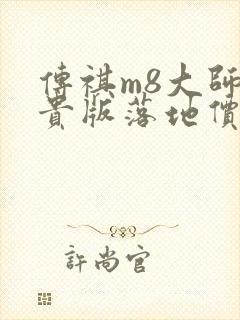 傳祺m8大師
貴版落地價
許尚官